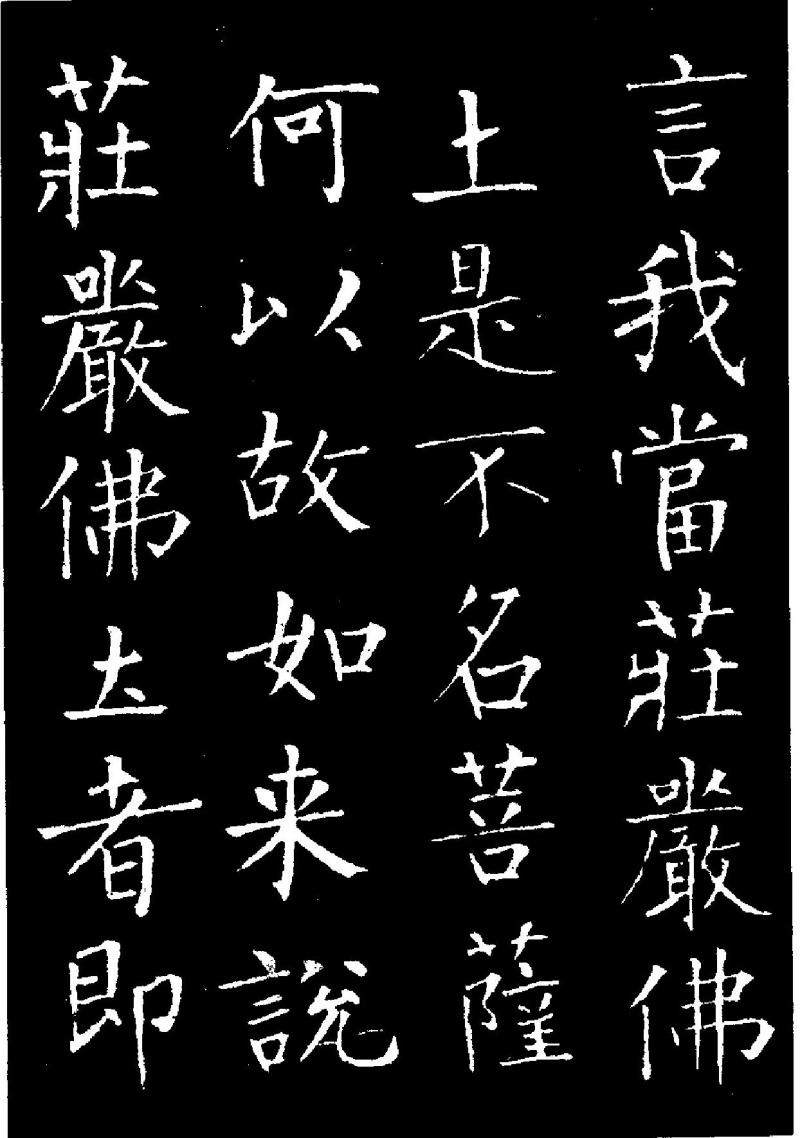 言我當莊嚴佛
土是不名菩薩
何以故如来說
莊嚴佛土者即